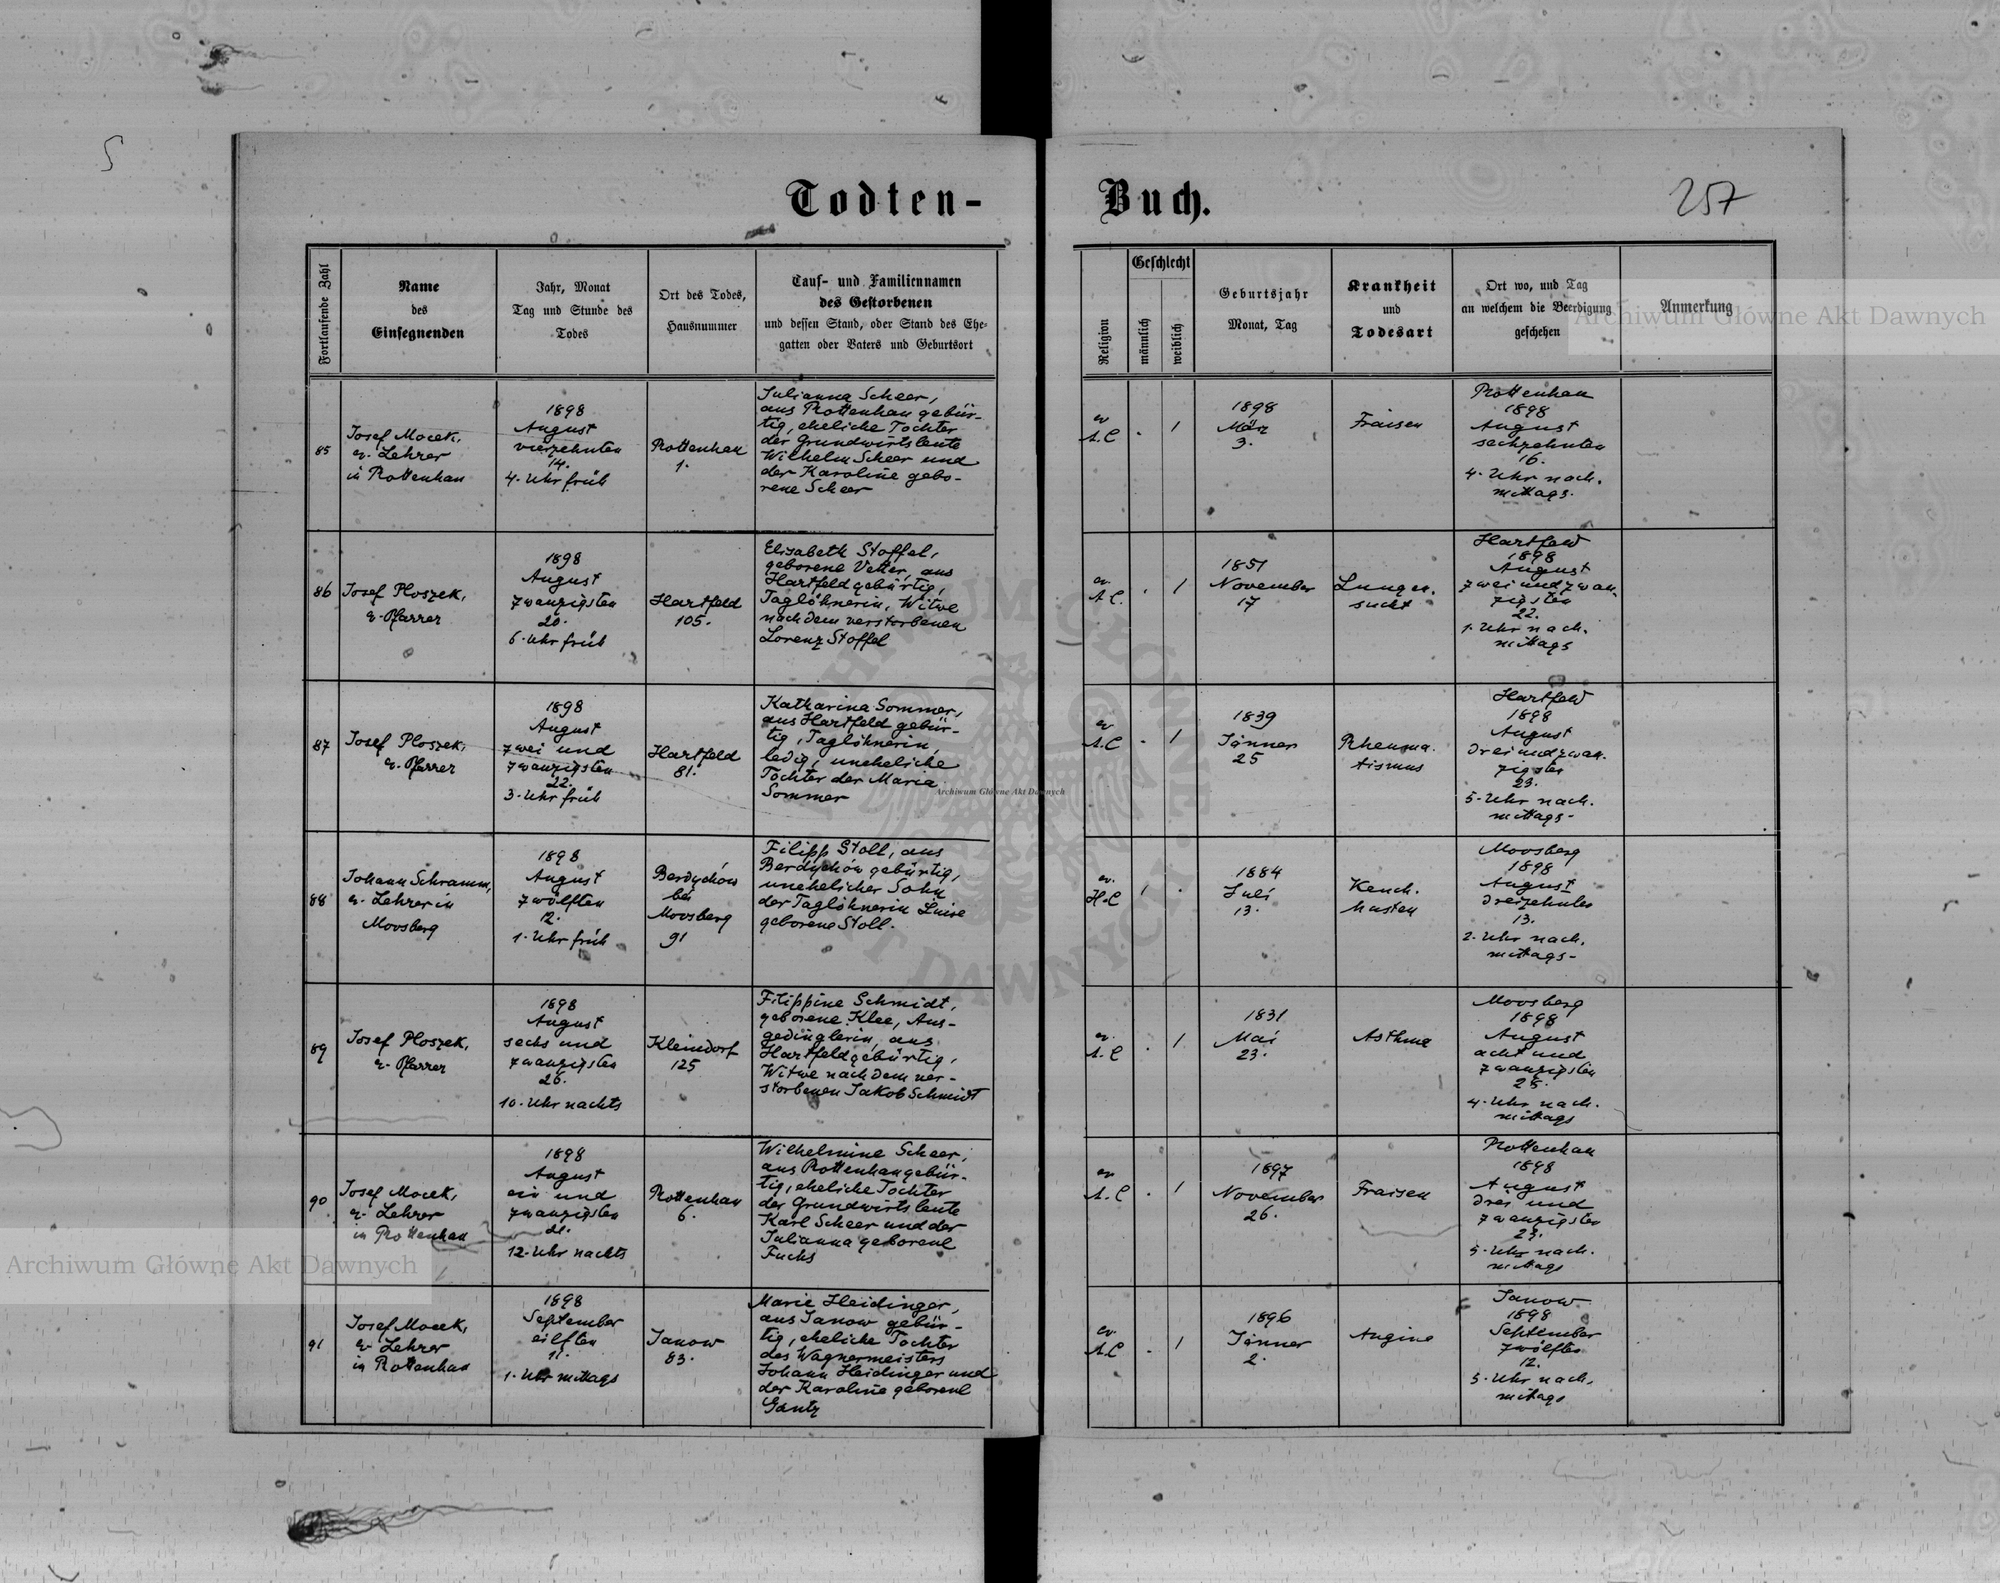 Todten-
Buch.
257
Fortlaufende Zahl
Name
des
Einsegnenden
Jahr, Monat
Tag und Stunde des
Todes
Ort des Todes,
Hausnummer
Tauf- und Familiennamen
des Gestorbenen
und dessen Stand, oder Stand des Ehe-
gatten oder Vaters und Geburtsort
Religion
Geschlecht
männlich
weiblich
Geburtsjahr
Monat, Tag
Krankheit
und
Todesart
Ort wo, und Tag
an welchem die Beerdigung
geschehen
Anmerkung
Archiwum Główne Akt Dawnych
85
Josef Mocek,
ev. Lehrer
in Rottenhan
1898
August
vierzehnten
14.
4. Uhr früh
Rottenhan
1.
Julianna Scheer,
aus Rottenhan gebür-
tig, eheliche Tochter
der Grundwirtsleute
Wilhelm Scheer und
der Karoline gebo-
rene Scheer
ev
A.C
.
1
1898
März
3.
Fraisen
Rottenhan
1898
August
sechzehnten
16.
4. Uhr nach.
mittags.
86
Josef Ploszek,
ev. Pfarrer
1898
August
zwanzigsten
20.
6. Uhr früh
Hartfeld
105.
Elisabeth Stoffel,
geborene Vetter, aus
Hartfeld gebürtig,
Taglöhnerin, Witwe
nach dem verstorbenen
Lorenz Stoffel
ev.
A.C.
.
1
1851
November
17
Lungen.
sucht
Hartfeld
1898
August
zwei und zwan.
zigsten
22.
1. Uhr nach.
mittags
87
Josef Ploszek,
ev. Pfarrer
1898
August
zwei und
zwanzigsten
22.
3. Uhr früh
Hartfeld
81.
Katharina Sommer,
aus Hartfeld gebür-
tig, Taglöhnerin,
ledig, uneheliche
Tochter der Maria
Sommer
ev
A.C
.
1
1839
Jänner
25
Rheuma.
tismus
Hartfeld
1898
August
drei und zwan.
zigsten
23.
5. Uhr nach.
mittags-
88
Johann Schramm,
ev. Lehrer in
Moosberg
1898
August
zwölften
12.
1. Uhr früh
Berdychów
bei
Moosberg
91
Filipp Stoll, aus
Berdychów gebürtig,
unehelicher Sohn
der Taglöhnerin Luise
geborene Stoll.
ev.
H.C
1
.
1884
Juli
13.
Keuch.
husten
Moosberg
1898
August
dreizehnten
13.
2. Uhr nach.
mittags-
89
Josef Ploszek,
ev. Pfarrer
1898
August
sechs und
zwanzigsten
26.
10. Uhr nachts
Kleindorf
125
Filippine Schmidt,
geborene Klee, Aus-
gedinglerin, aus
Hartfeld gebürtig,
Witwe nach dem ver-
storbenen Jakob Schmidt
ev.
A.C
.
1
1831
Mai
23.
Asthma
Moosberg
1898
August
acht und
zwanzigsten
4. Uhr nach.
mittags
90
Josef Mocek,
ev. Lehrer
in Rottenhan
1898
August
ein und
zwanzigsten
21.
12. Uhr nachts
Rottenhan
6.
Wilhelmine Scheer,
aus Rottenhan gebür-
tig, eheliche Tochter
der Grundwirtsleute
Karl Scheer und der
Julianna geborene
Fuchs
ev
A.C
.
1
1897
November
26.
Fraisen
Rottenhan
1898
August
drei und
zwanzigsten
23.
5. Uhr nach.
mittags
Archiwum Główne Akt Dawnych
91
Josef Mocek,
ev. Lehrer
in Rottenhan
1898
September
eilften
11.
1. Uhr mittags
Janow
83.
Marie Heidinger,
aus Janow gebür-
tig, eheliche Tochter
des Wagnermeisters
Johann Heidinger und
der Karoline geborene
Gantz
ev.
A.C
.
1
1896
Jänner
2.
Angina
Janow
1898
September
zwölften
12.
5. Uhr nach.
mittags
Archiwum Główne Akt Dawnych